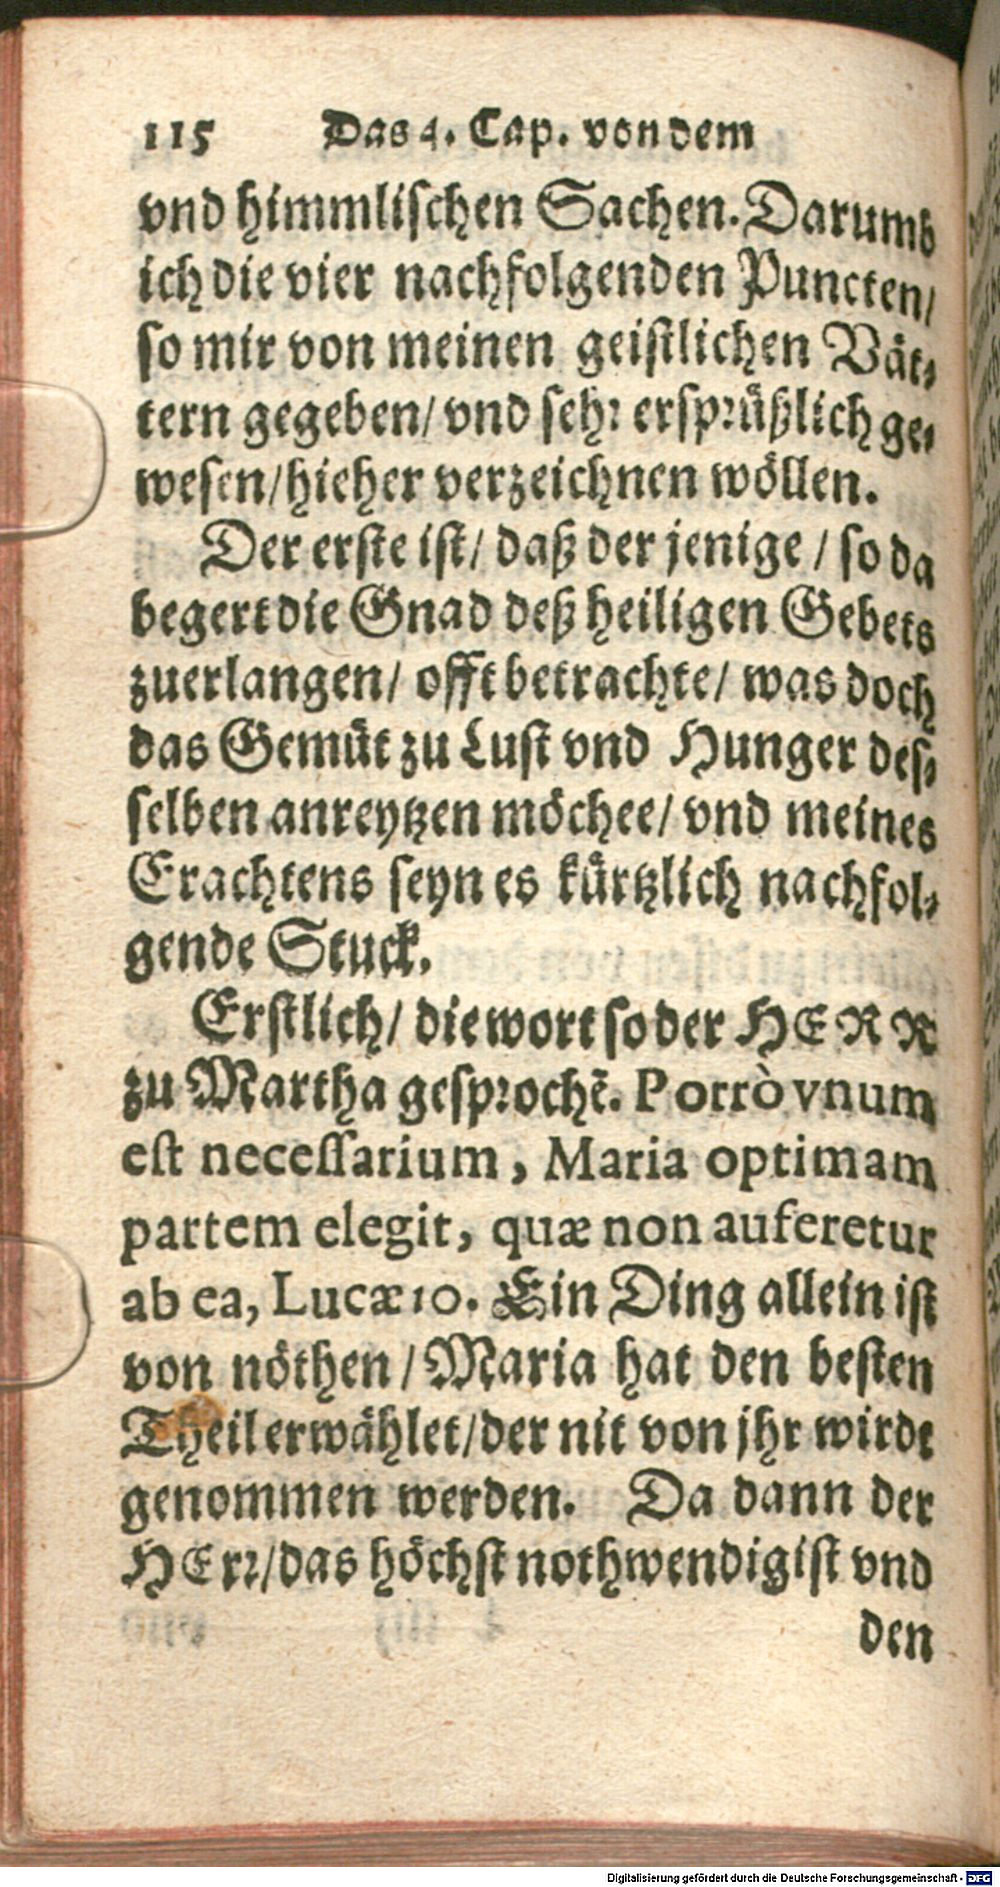 115 Das 4. Cap. von dem
vnd himmlischen Sachen. Darumb
ich die vier nachfolgenden Puncten/
so mir von meinen geistlichen Vät-
tern gegeben/ vnd sehr ersprüßlich ge-
wesen/hieher verzeichnen wöllen.
Der erste ist/ daß der jenige / so da
begert die Gnad deß heiligen Gebets
zuerlangen/ offt betrachte/ was doch
das Gemüt zu Lust vnd Hunger des-
selben anreytzen möchee/ vnd meines
Erachtens seyn es kürtzlich nachfol-
gende Stuck.
Erstlich/ die wort so der HERR
zu Martha gesprochẽ. Porrò vnum
est necessarium, Maria optimam
partem elegit, quæ non auferetur
ab ea, Lucæ 10. Ein Ding allein ist
von nöthen / Maria hat den besten
Theil erwählet/der nit von jhr wirdt
genommen werden. Da dann der
HErr/das höchst nothwendigist vnd
den
Digitalisierung gefördert durch die Deutsche Forschungsgemeinschaft - DFG